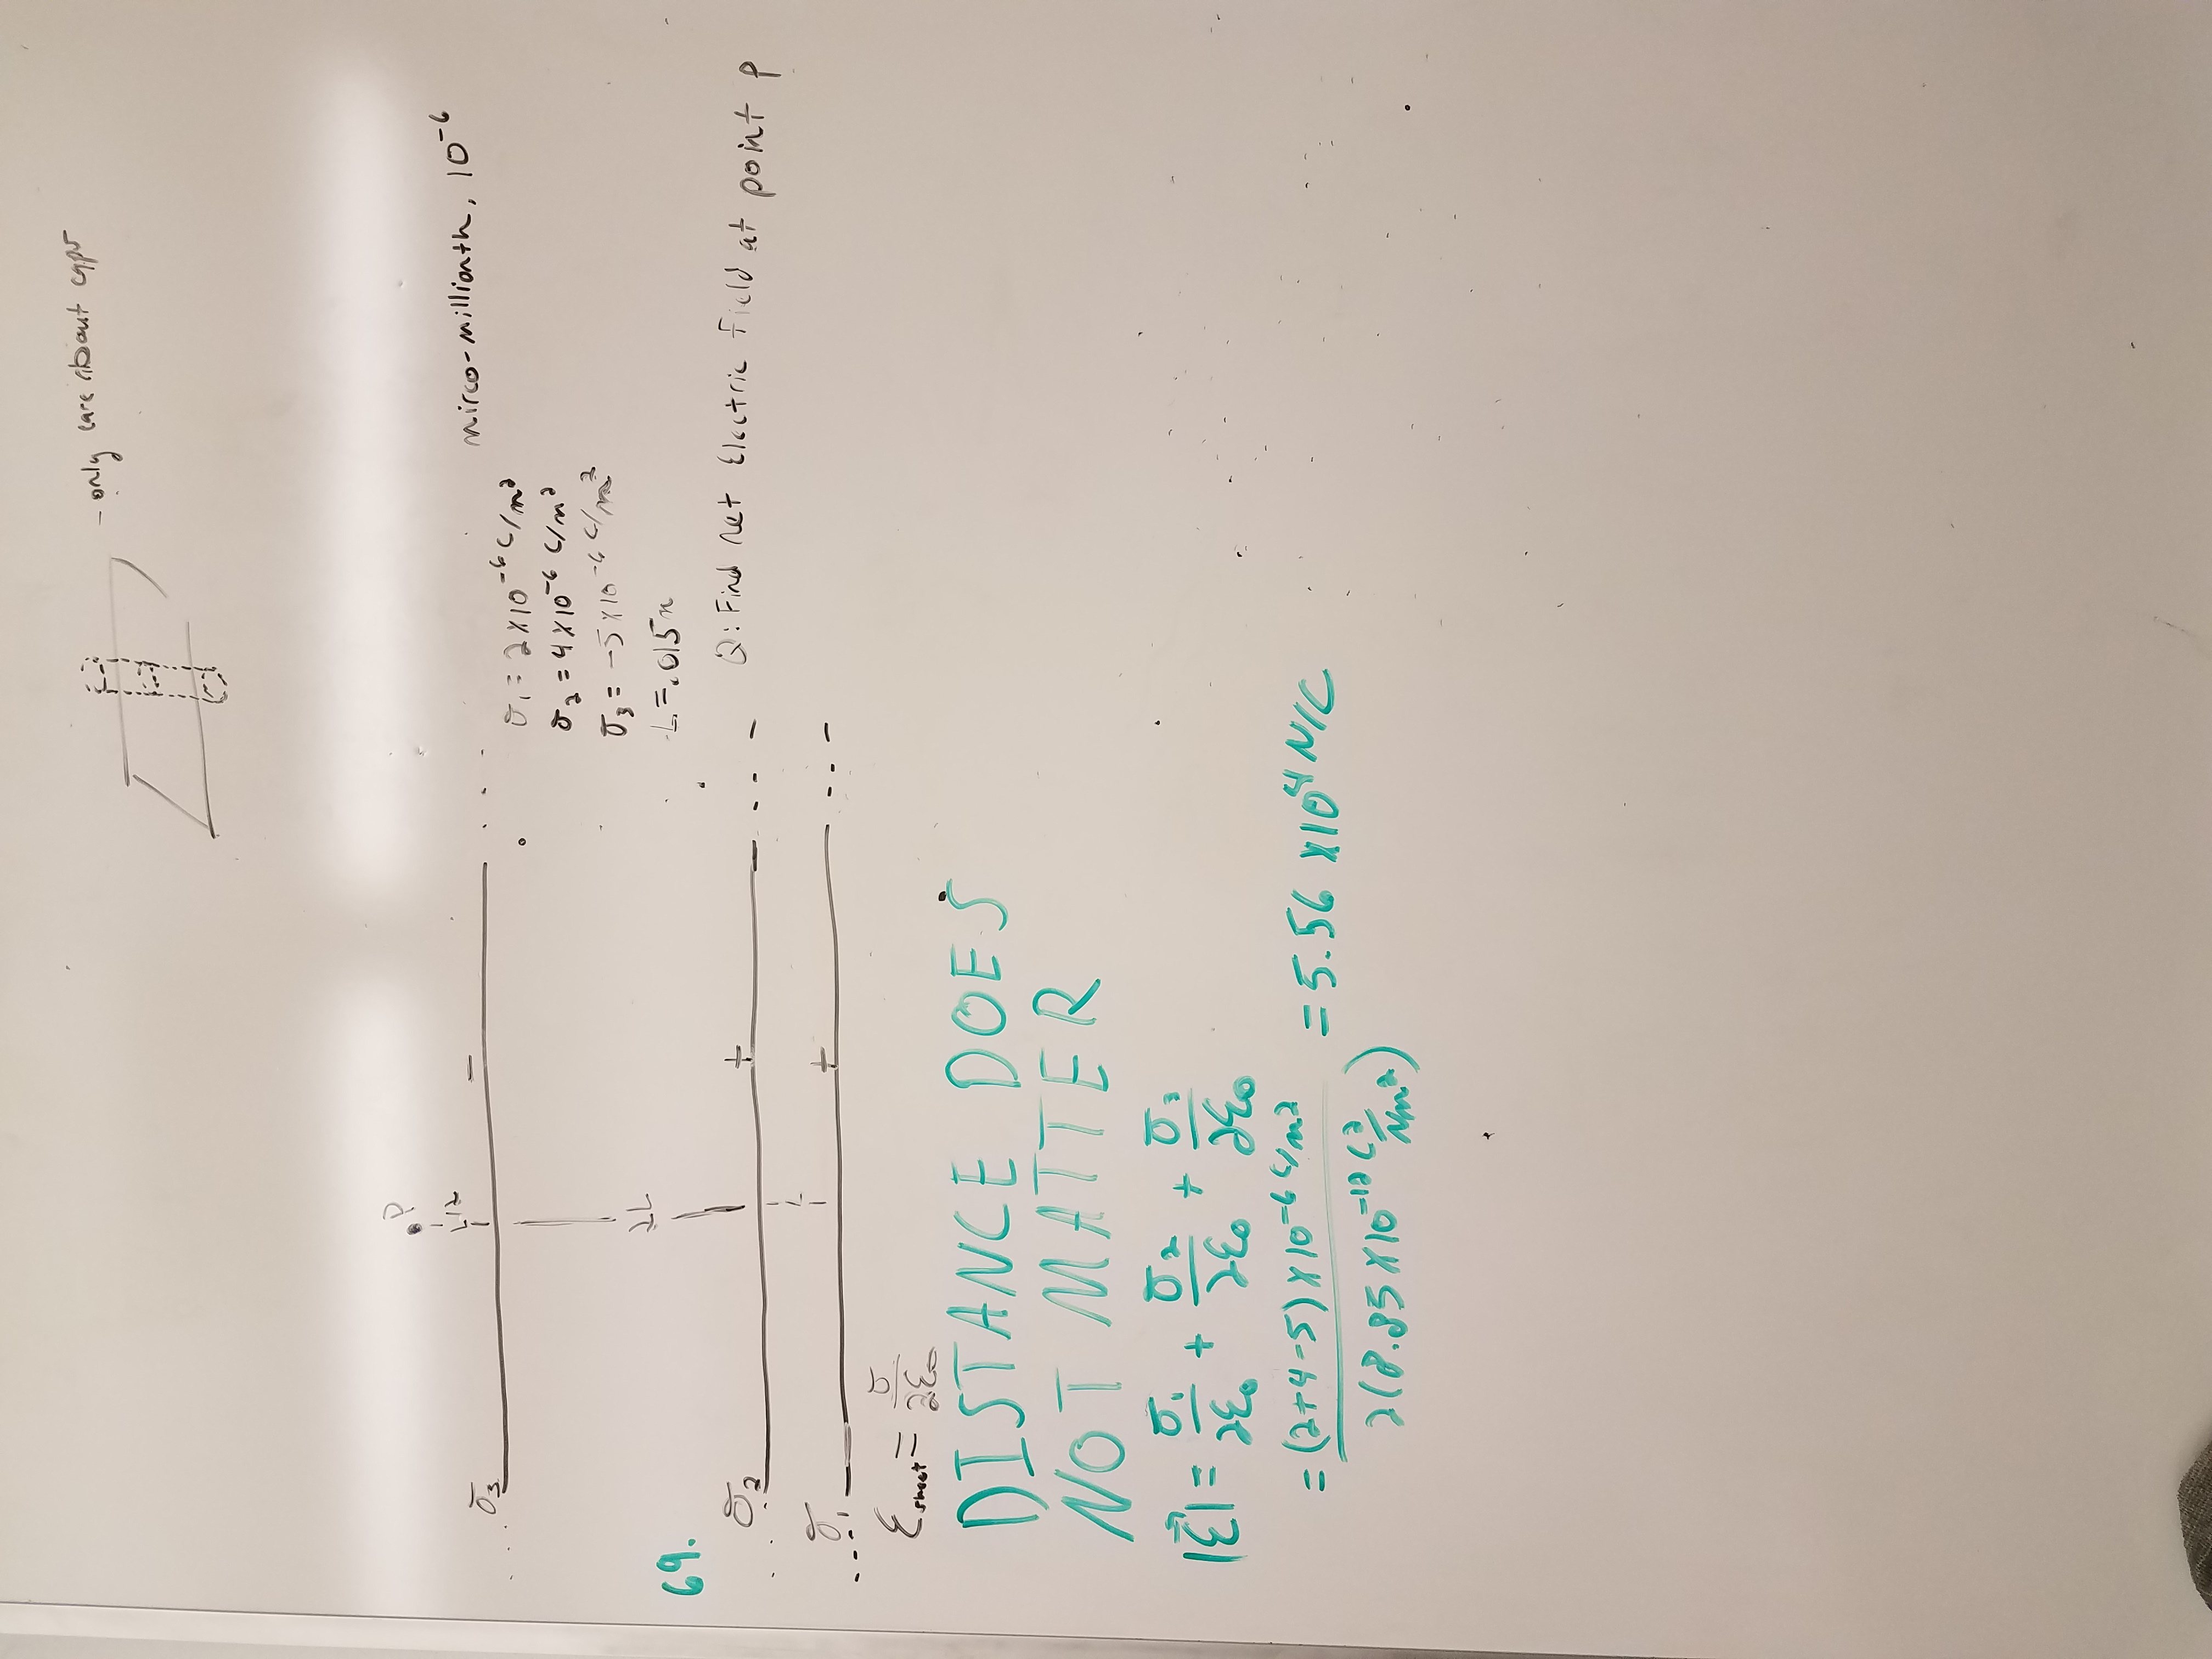 - only care about caps
• P
L/2
σ₃ -
mirco-millionth, 10⁻⁶
σ₁ = 2×10⁻⁶ C/m²
σ₂ = 4×10⁻⁶ C/m²
σ₃ = -5×10⁻⁶ C/m²
2L
L = .015m
69.
σ₂ +
Q: Find net Electric Field at point P
L
σ₁ +
Ɛsheet = σ/2Ɛ₀
DISTANCE DOES
NOT MATTER
|Ɛ⃗| = σ₁/2Ɛ₀ + σ₂/2Ɛ₀ + σ₃/2Ɛ₀
= (2+4-5)×10⁻⁶ C/m² / 2(8.85×10⁻¹² C²/Nm²) = 5.56 ×10⁴ N/C